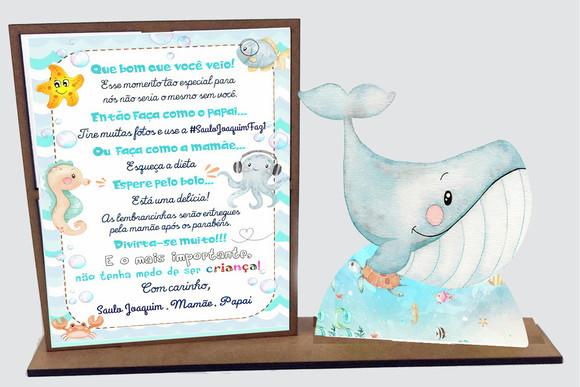 Que bom que você veio!
Esse momento tão especial para
nós não seria o mesmo sem você.
Então Faça como o papai...
Tire muitas fotos e use a #SauloJoaquimFaz1
Ou Faça como a mamãe...
Esqueça a dieta
Espere pelo bolo...
Está uma delícia!
As lembrancinhas serão entregues
pela mamãe após os parabéns.
Divirta-se muito!!!
E o mais importante,
não tenha medo de ser criança!
Com carinho,
Saulo Joaquim . Mamãe . Papai